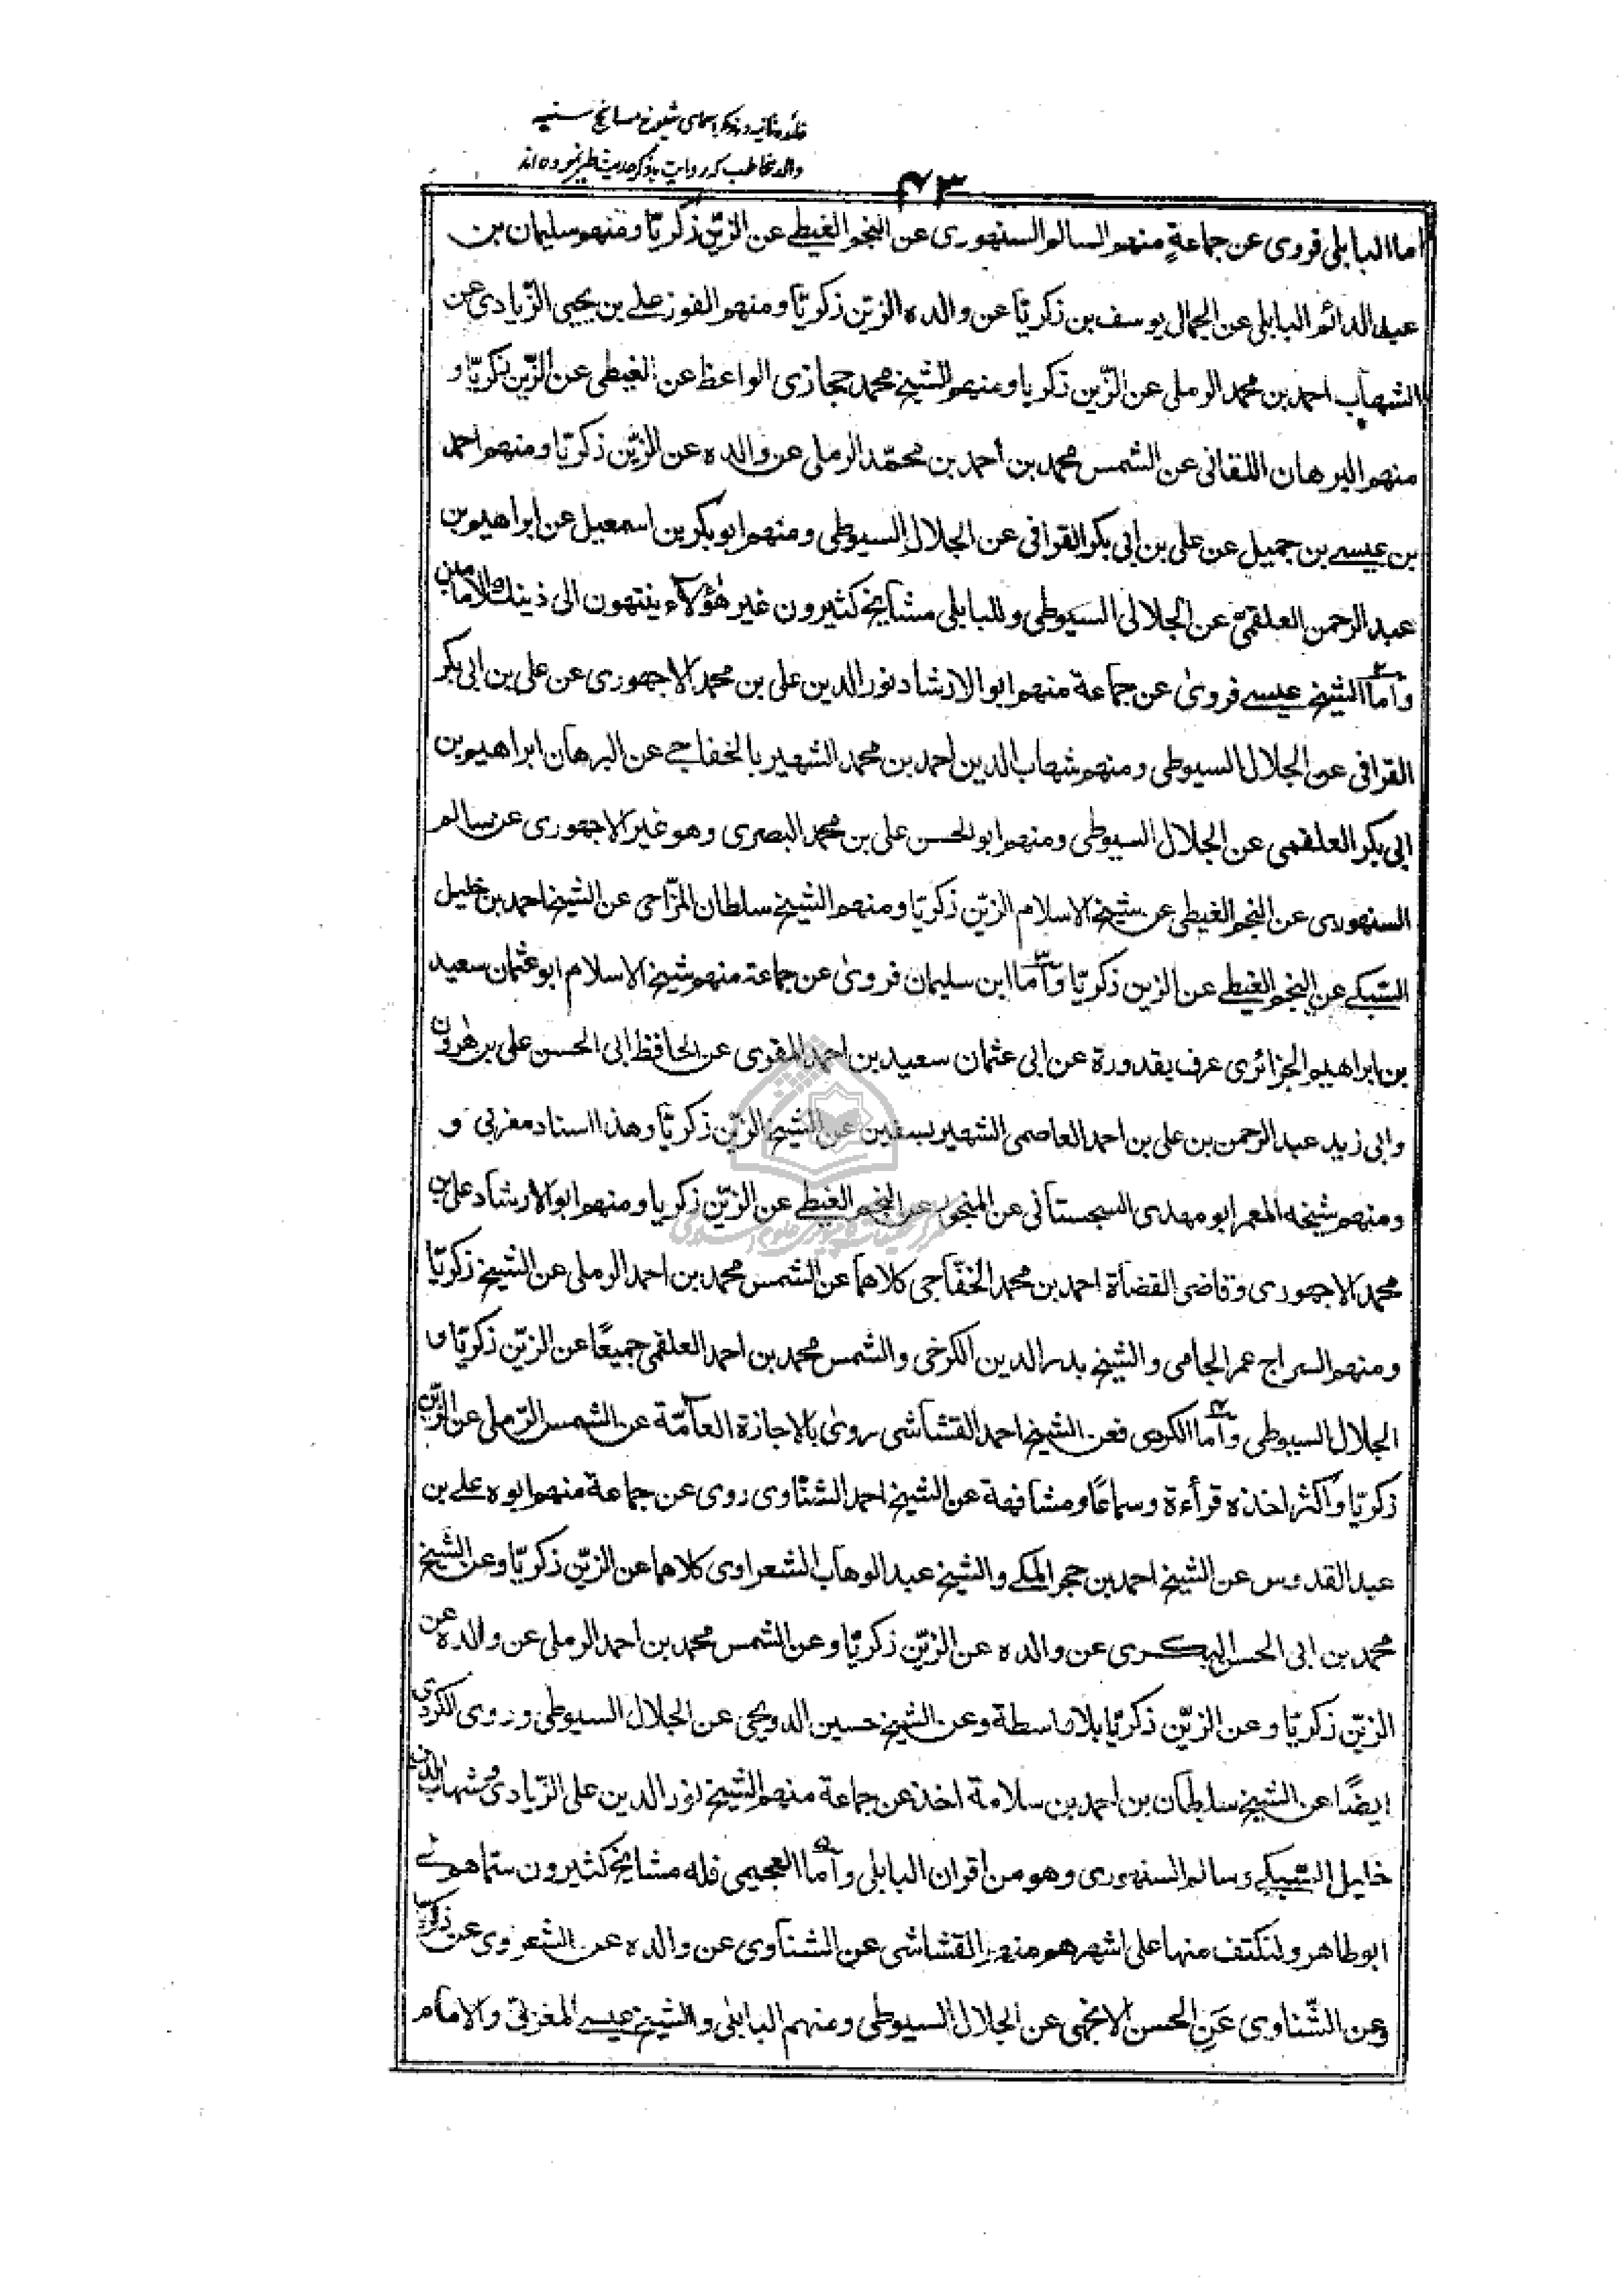 فائده ثانيه در ذكر اسماى شيوخ مشايخ سنيه
والد مخاطب كه روايت يا ذكر حديث طير نموده اند
٤٣
اما البابلى فروى عن جماعةٍ منهم السالم السنهورى عن النجم الغيطے عن الزيّن زكريّا ومنهم سليمان بن
عبد الدائم البابلى عن الجمال يوسف بن زكريّا عن والده الزيّن زكريّا ومنهم الفوز علے بن يحيى الزّيادى عن
الشهاب احمد بن محمد الرملى عن الزّين زكريا ومنهم الشيخ محمد حجازى الواعظ عن الغيطى عن الزّين زكريّا و
منهم البرهان اللقانى عن الشمس محمد بن احمد بن محمّد الرملى عن والده عن الزيّن زكريّا ومنهم احمد
بن عيسے بن جميل عن على بن ابى بكر القرافى عن الجلال السيوطى ومنهم ابو بكر بن اسمعيل عن ابراهيم بن
عبد الرحمن العلقمىّ عن الجلالى السيوطى وللبابلى مشايخ كثيرون غير هؤلاء ينتهون الى ذينك الامامين
وآما الشيخ عيسے فروىٰ عن جماعة منهم ابو الارشاد نور الدين على بن محمد الاجهورى عن على بن ابى بكر
القرافى عن الجلال السيوطى ومنهم شهاب الدين احمد بن محمد الشهير بالخفاجے عن البرهان ابراهيم بن
ابى بكر العلقمى عن الجلال السيوطى ومنهم ابو الحسن على بن محمد البصرى وهو غير الاجهورى عن سالم
السنهورى عن النجم الغيطى عن شيخ الاسلام الزيّن زكريّا ومنهم الشيخ سلطان المزّاحى عن الشيخ احمد بن خليل
السّبكے عن النجم الغيطے عن الزين زكريّا وآمّا ابن سليمان فروىٰ عن جماعة منهم شيخ الاسلام ابو عثمان سعيد
بن ابراهيم الجزائرى عرف بقدورة عن ابى عثمان سعيد بن احمد المقرى عن الحافظ ابى الحسن على بن هٰرون
وابى زيد عبد الرحمن بن على بن احمد العاصمى الشهير بسقين عن الشيخ الزيّن زكريّا وهذا اسناد مغربى و
ومنهم شيخه المعمر ابو مهدى السجستانى عن المنجور عن النجم الغيطے عن الزيّن زكريا ومنهم ابو الارشاد على بن
محمد الاجهورى وقاضى القضاة احمد بن محمد الخفّاجى كلاهما عن الشمس محمد بن احمد الرملى عن الشيخ زكريّا
ومنهم السراج عمر الجامى والشيخ بدر الدين الكرخى والشمس محمد بن احمد العلقمى جميعًا عن الزيّن زكريّا و
الجلال السيوطى وآما الكردى فعن الشيخ احمد القشاشى روىٰ بالاجازة العامّة عن الشمس الرّملى عن الزيّن
زكريّا وأكثر اخذه قرأءة وسماعًا ومشافهة عن الشيخ احمد الشنّاوى روى عن جماعة منهم ابوه علے بن
عبد القدوس عن الشيخ احمد بن حجر المكے والشيخ عبد الوهاب الشعراوى كلاهما عن الزيّن زكريّا وعن الشيخ
محمد بن ابى الحسن البكرى عن والده عن الزيّن زكريّا وعن الشمس محمد بن احمد الرملى عن والده عن
الزيّن زكريّا وعن الزيّن زكريّا بلا واسطة وعن الشيخ حسين الدويجى عن الجلال السيوطى وروى الكردى
ايضًا عن الشيخ سلطان بن احمد بن سلامة اخذ عن جماعة منهم الشيخ نور الدين على الزّيادى وشهاب الدين
خليل السّبكے وسالم السنهورى وهو من اقران البابلى وآما العجيمى فله مشايخ كثيرون ستماهم لے
ابو طاهر ولنكتف منها على اشهرهم منهم القشاشى عن الشناوى عن والده عن الشعروى عن زكريّا
وعن الشّناوى عَن الحسن عن الجلال السيوطى ومنهم البابلى والشيخ عيسے المغربىّ والامام